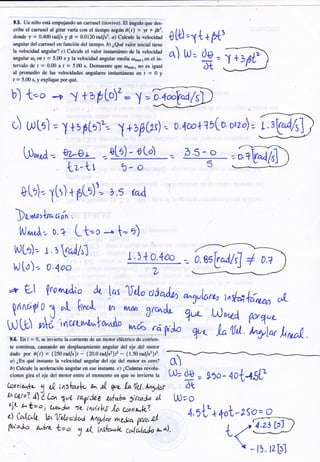 9.5. Un niño está empujando un carrusel (tiovivo). El ángulo que describe el carrusel al girar varía con el tiempo según θ(t) = γt + βt³,
donde γ = 0.400 rad/s y β = 0.0120 rad/s³. a) Calcule la velocidad
angular del carrusel en función del tiempo. b) ¿Qué valor inicial tiene
la velocidad angular? c) Calcule el valor instantáneo de la velocidad
angular ωz en t = 5.00 s y la velocidad angular media ωmed-z en el intervalo de t = 0.00 a t = 5.00 s. Demuestre que ωmed-z no es igual
al promedio de las velocidades angulares instantáneas en t = 0 y
t = 5.00 s, y explique por qué.
θ(t) = γt + βt³
a) W = dθ/dt = γ + 3βt²
b) t=0 → γ + 3β(0)² = γ = 0.400[rad/s]
c) W(5) = γ + 3β(5)² = γ + 3β(25) = 0.400 + 75(0.0120) = 1.3[rad/s]
Wmed = θ2-θ1 / t2-t1 = θ(5) - θ(0) / 5-0 = 3.5-0 / 5 = 0.7[rad/s]
θ(5) = γ(5) + β(5)³ = 3.5 rad
Demostración:
Wmed = 0.7 (t=0 → t=5)
W(5) = 1.3[rad/s]
W(0) = 0.400
1.3 + 0.400 / 2 = 0.85[rad/s] ≠ 0.7
* El promedio de las Velocidades angulares instantáneas al
principio y al final es mas grande que Wmed porque
W(t) está incrementando más rápido que la Vel. Angular lineal.
9.6. En t = 0, se invierte la corriente de un motor eléctrico de corriente continua, causando un desplazamiento angular del eje del motor
dado por θ(t) = (250 rad/s)t − (20.0 rad/s²)t² − (1.50 rad/s³)t³.
a) ¿En qué instante la velocidad angular del eje del motor es cero?
b) Calcule la aceleración angular en ese instante. c) ¿Cuántas revoluciones gira el eje del motor entre el momento en que se invierte la
corriente y el instante en el que la Vel. Angular
es cero? d) ¿Con qué rapidez estaba girando el
eje en t=0, cuando se invirtió la corriente?
e) Calcule la Velocidad Angular media para el
periodo entre t=0 y el instante calculado en a).
a)
W = dθ/dt = 250 - 40t - 4.5t²
W = 0
4.5t² + 40t - 250 = 0
t
4.23 [s]
-13.12[s]